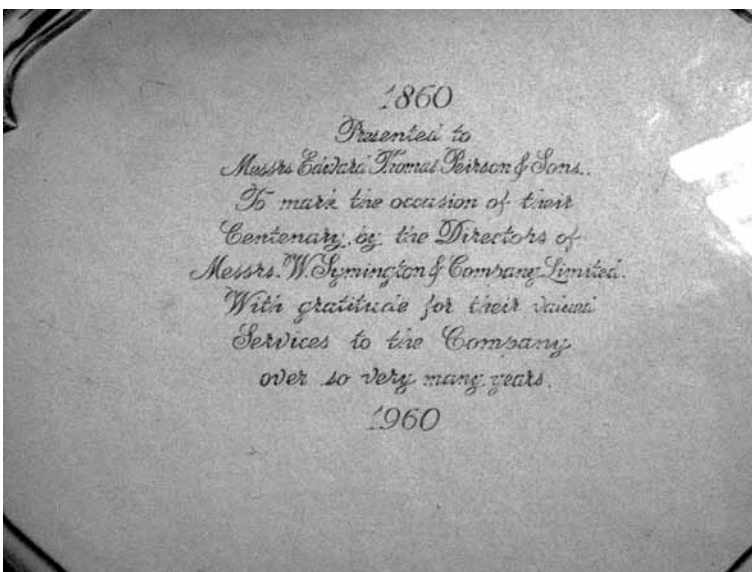 1860
Presented to
Messrs Edward Thomas Peirson & Sons.
To mark the occasion of their
Centenary, by the Directors of
Messrs. W. Symington & Company Limited.
With gratitude for their valued
Services to the Company
over so very many years.
1960